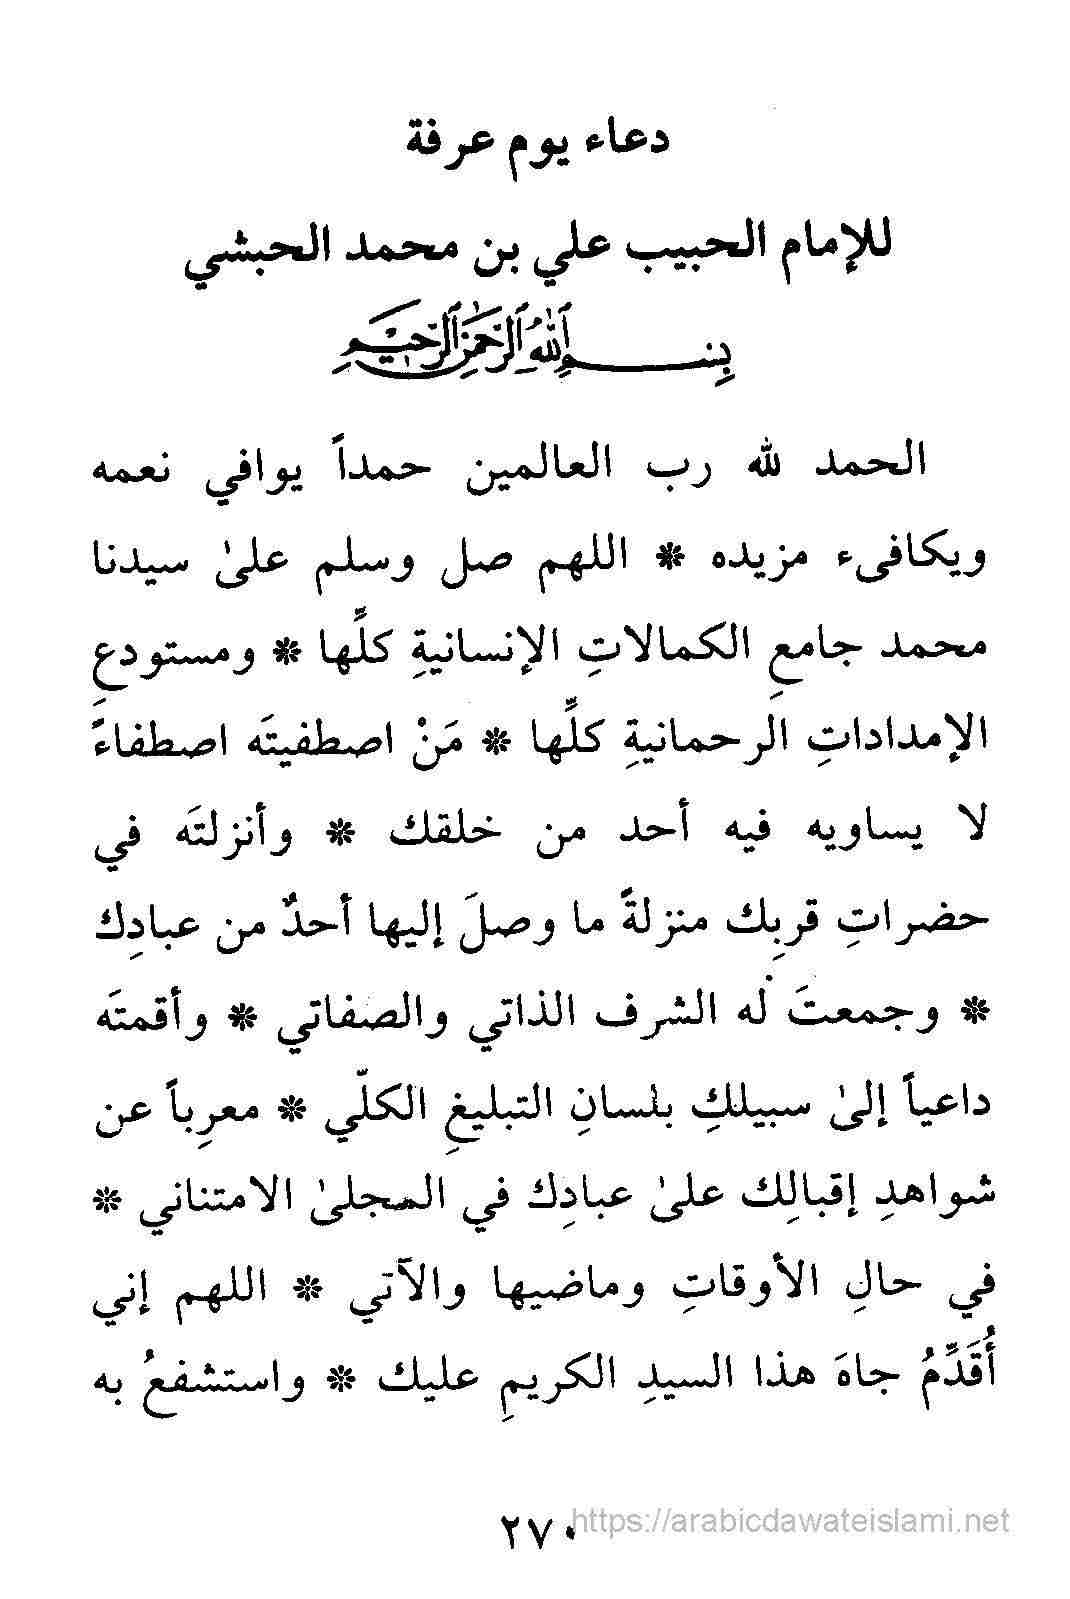 دعاء يوم عرفة
للإمام الحبيب علي بن محمد الحبشي
بِسْمِ اللهِ الرَّحْمٰنِ الرَّحِيمِ
الحمد لله رب العالمين حمداً يوافي نعمه
ويكافىء مزيده * اللهم صل وسلم علىٰ سيدنا
محمد جامعِ الكمالاتِ الإنسانيةِ كلِّها * ومستودعِ
الإمداداتِ الرحمانيةِ كلِّها * مَنْ اصطفيتَه اصطفاءً
لا يساويه فيه أحد من خلقك * وأنزلتَه في
حضراتِ قربِك منزلةً ما وصلَ إليها أحدٌ من عبادِك
* وجمعتَ له الشرف الذاتي والصفاتي * وأقمتَه
داعياً إلىٰ سبيلكِ بلسانِ التبليغِ الكلّي * معرِباً عن
شواهدِ إقبالِك علىٰ عبادِك في المجلىٰ الامتناني *
في حالِ الأوقاتِ وماضيها والآتي * اللهم إني
أُقَدِّمُ جاهَ هذا السيدِ الكريمِ عليك * واستشفعُ به
٢٧٠
https://arabicdawateislami.net